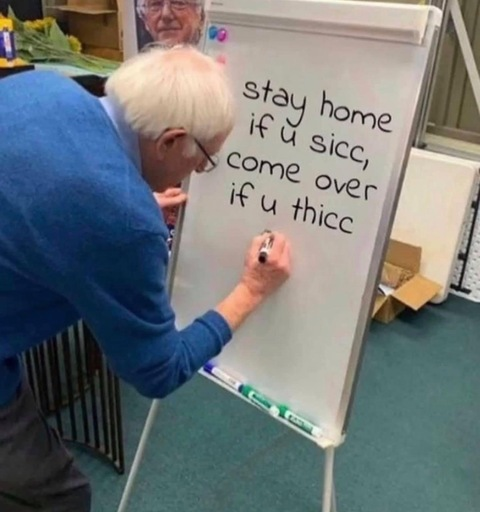 stay home
if u sicc,
come over
if u thicc